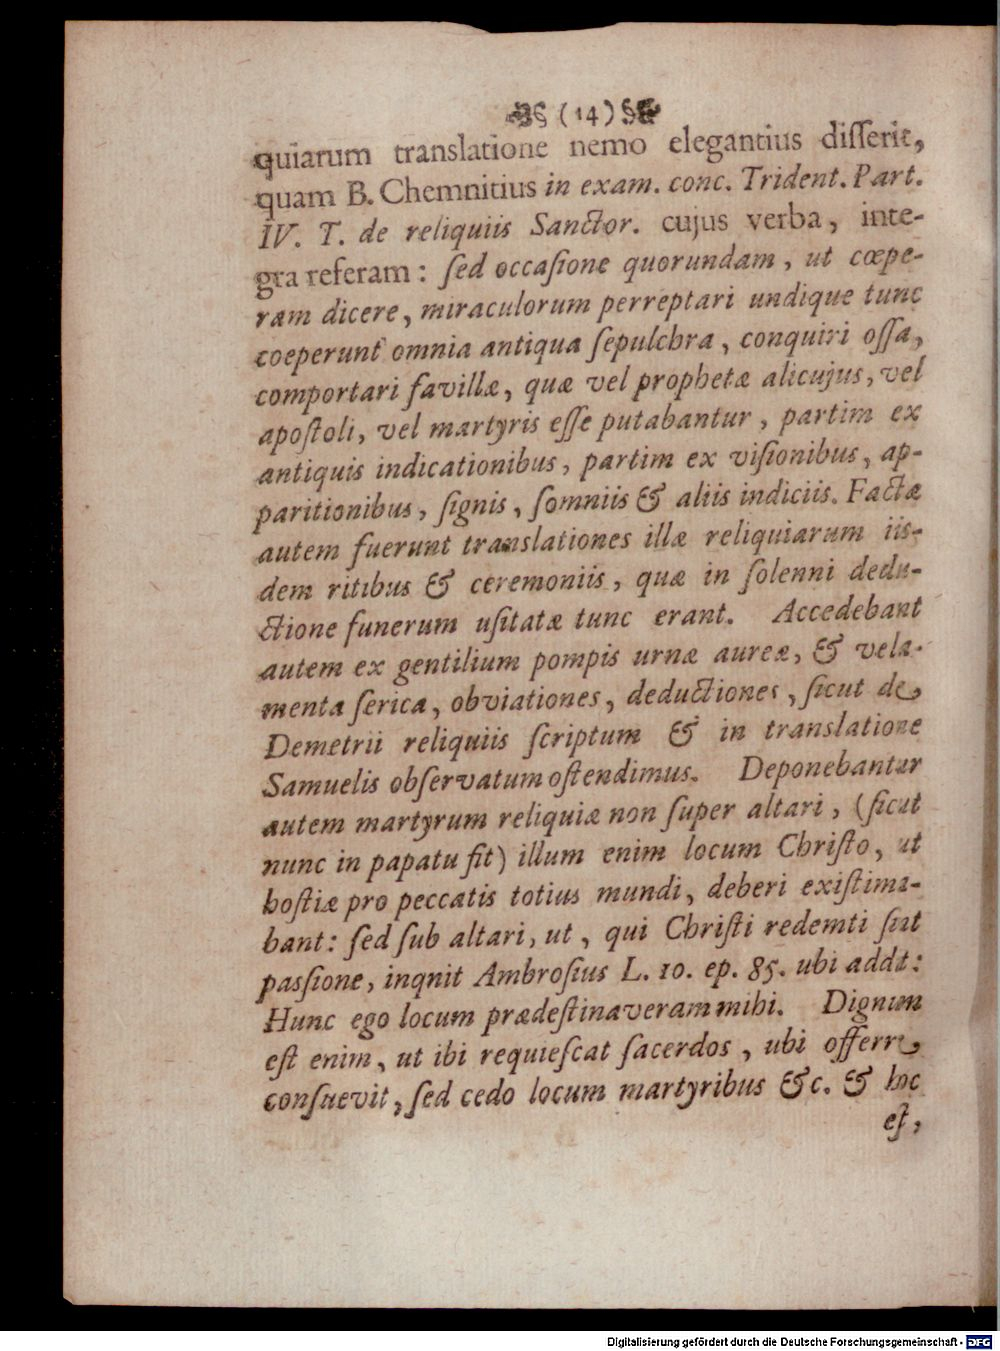 (14)
quiarum translatione nemo elegantius disserit,
quam B. Chemnitius in exam. conc. Trident. Part.
IV. T. de reliquiis Sanctor. cujus verba, inte-
gra referam: ſed occaſione quorundam, ut cœpe-
ram dicere, miraculorum perreptari undique tunc
coeperunt omnia antiqua ſepulchra, conquiri oſſa,
comportari favillæ, quæ vel prophetæ alicujus, vel
apoſtoli, vel martyris eſſe putabantur, partim ex
antiquis indicationibus, partim ex viſionibus, ap-
paritionibus, ſignis, ſomniis & aliis indiciis. Factæ
autem fuerunt translationes illæ reliquiarum iis-
dem ritibus & ceremoniis, quæ in ſolenni dedu-
ctione funerum uſitatæ tunc erant. Accedebant
autem ex gentilium pompis urnæ aureæ, & vela-
menta ſerica, obviationes, deductiones, ſicut de
Demetrii reliquiis ſcriptum & in translatione
Samuelis obſervatum oſtendimus. Deponebantur
autem martyrum reliquiæ non ſuper altari, (ſicut
nunc in papatu fit) illum enim locum Chriſto, ut
hoſtiæ pro peccatis totius mundi, deberi exiſtima-
bant: ſed ſub altari, ut, qui Chriſti redemti ſint
paſsione, inqnit Ambroſius L. 10. ep. 85. ubi addit:
Hunc ego locum prædeſtinaveram mihi. Dignum
eſt enim, ut ibi requieſcat ſacerdos, ubi offerre
conſuevit, ſed cedo locum martyribus &c. & hoc
eſt,
Digitalisierung gefördert durch die Deutsche Forschungsgemeinschaft - DFG